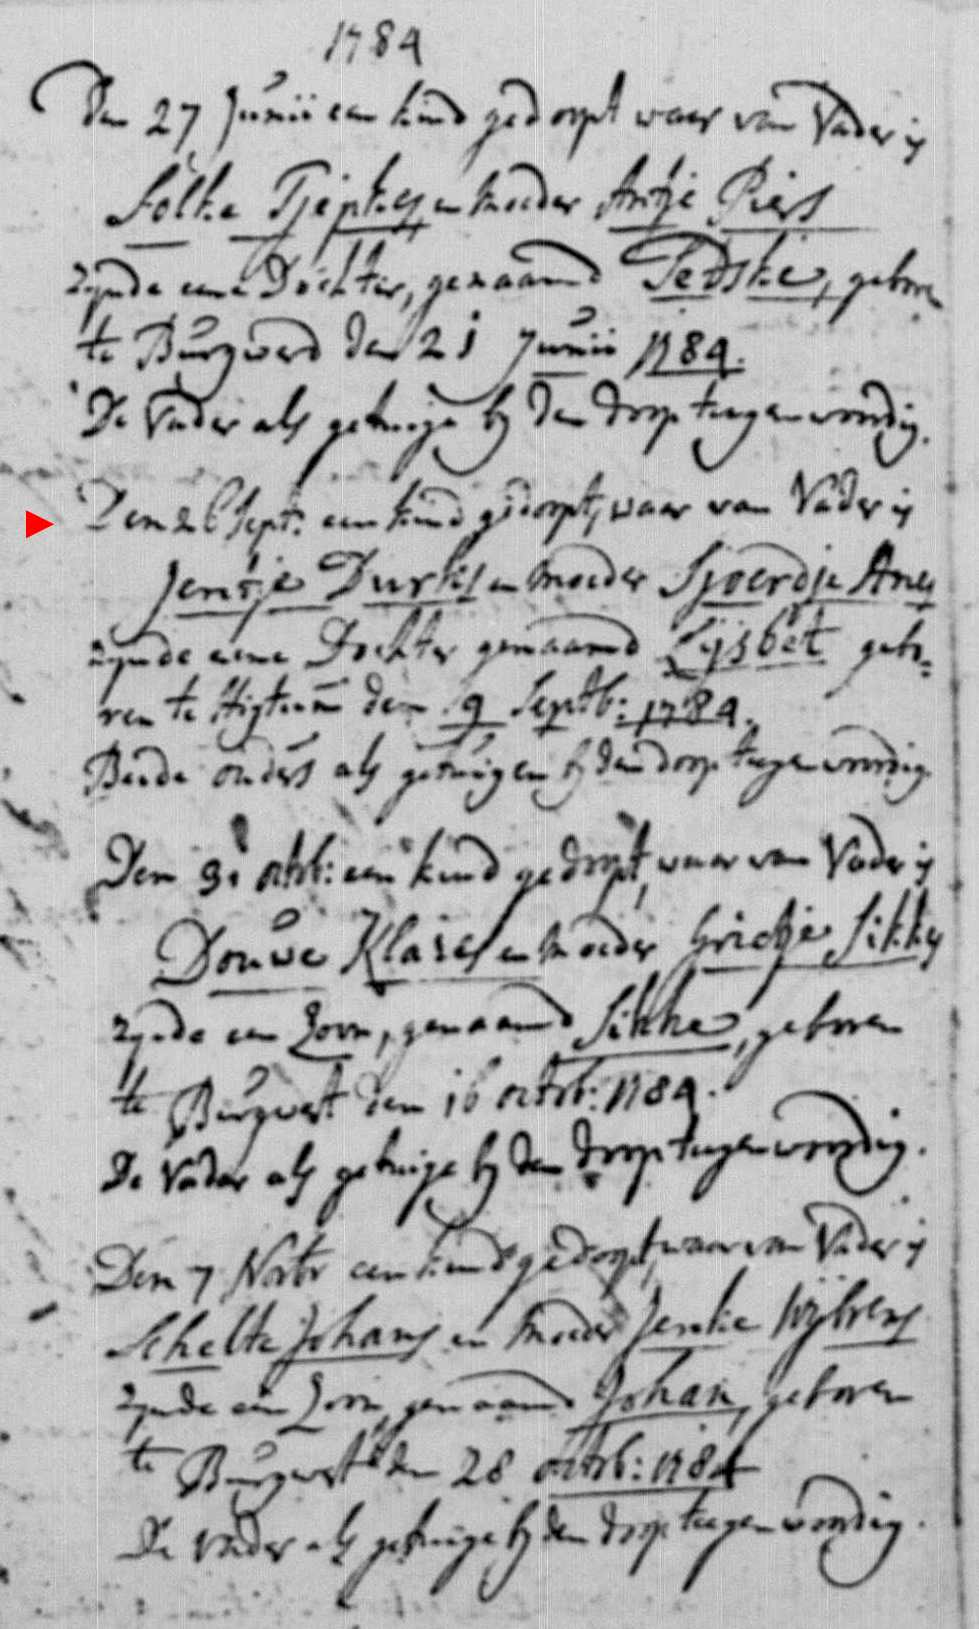 1784
Den 27 Junii een kind gedoopt waar van Vader is
Folke Tjepkes en moeder Antje Piers
zynde eene Dochter, genaamd Tedske, geboren
te Burgwerd den 21 Junii 1784.
De Vader als getuige by den doop tegenwoordig.
Den 26 Sept: een kind gedoopt, waar van Vader is
Jentje Durks en moeder Sjoerdje Anes
zynde eene Dochter genaamd Lijsbet gebo=
ren te Higtum den 9 Septb: 1784.
Beide ouders als getuigen by den doop tegenwoordig
Den 31 octob: een kind gedoopt, waar van Vader is
Douwe Klases en moeder Grietje Sikkes
zynde een Zoon, genaamd Sikke, geboren
te Burgwert den 16 octob: 1784.
De Vader als getuige by den doop tegenwoordig.
Den 7 Novbr een kind gedoopt, waar van Vader is
Schelte Johans en moeder Jenke Wybrens
zynde een Zoon, genaamd Johan, geboren
te Burgwert den 28 octob: 1784
De vader als getuige by den doop tegenwoordig.